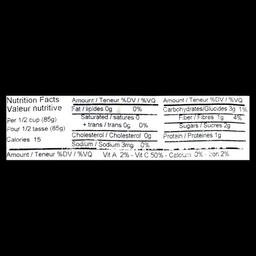 Nutrition Facts
Valeur nutritive
Per 1/2 cup (85g)
Pour 1/2 tasse (85g)
Calories 15
Amount / Teneur %DV / %VQ
Fat / lipides 0g 0%
Saturated / saturés 0
+ trans / trans 0g 0%
Cholesterol / Cholesterol 0g
Sodium / Sodium 3mg 0%
Amount / Teneur %DV / %VQ
Carbohydrates/Glucides 3g 1%
Fiber / Fibres 1g 4%
Sugars / Sucres 2g
Protein / Protéines 1g
Amount / Teneur %DV / %VQ Vit A 2% - Vit C 50% - Calcium 0% - Iron 2%